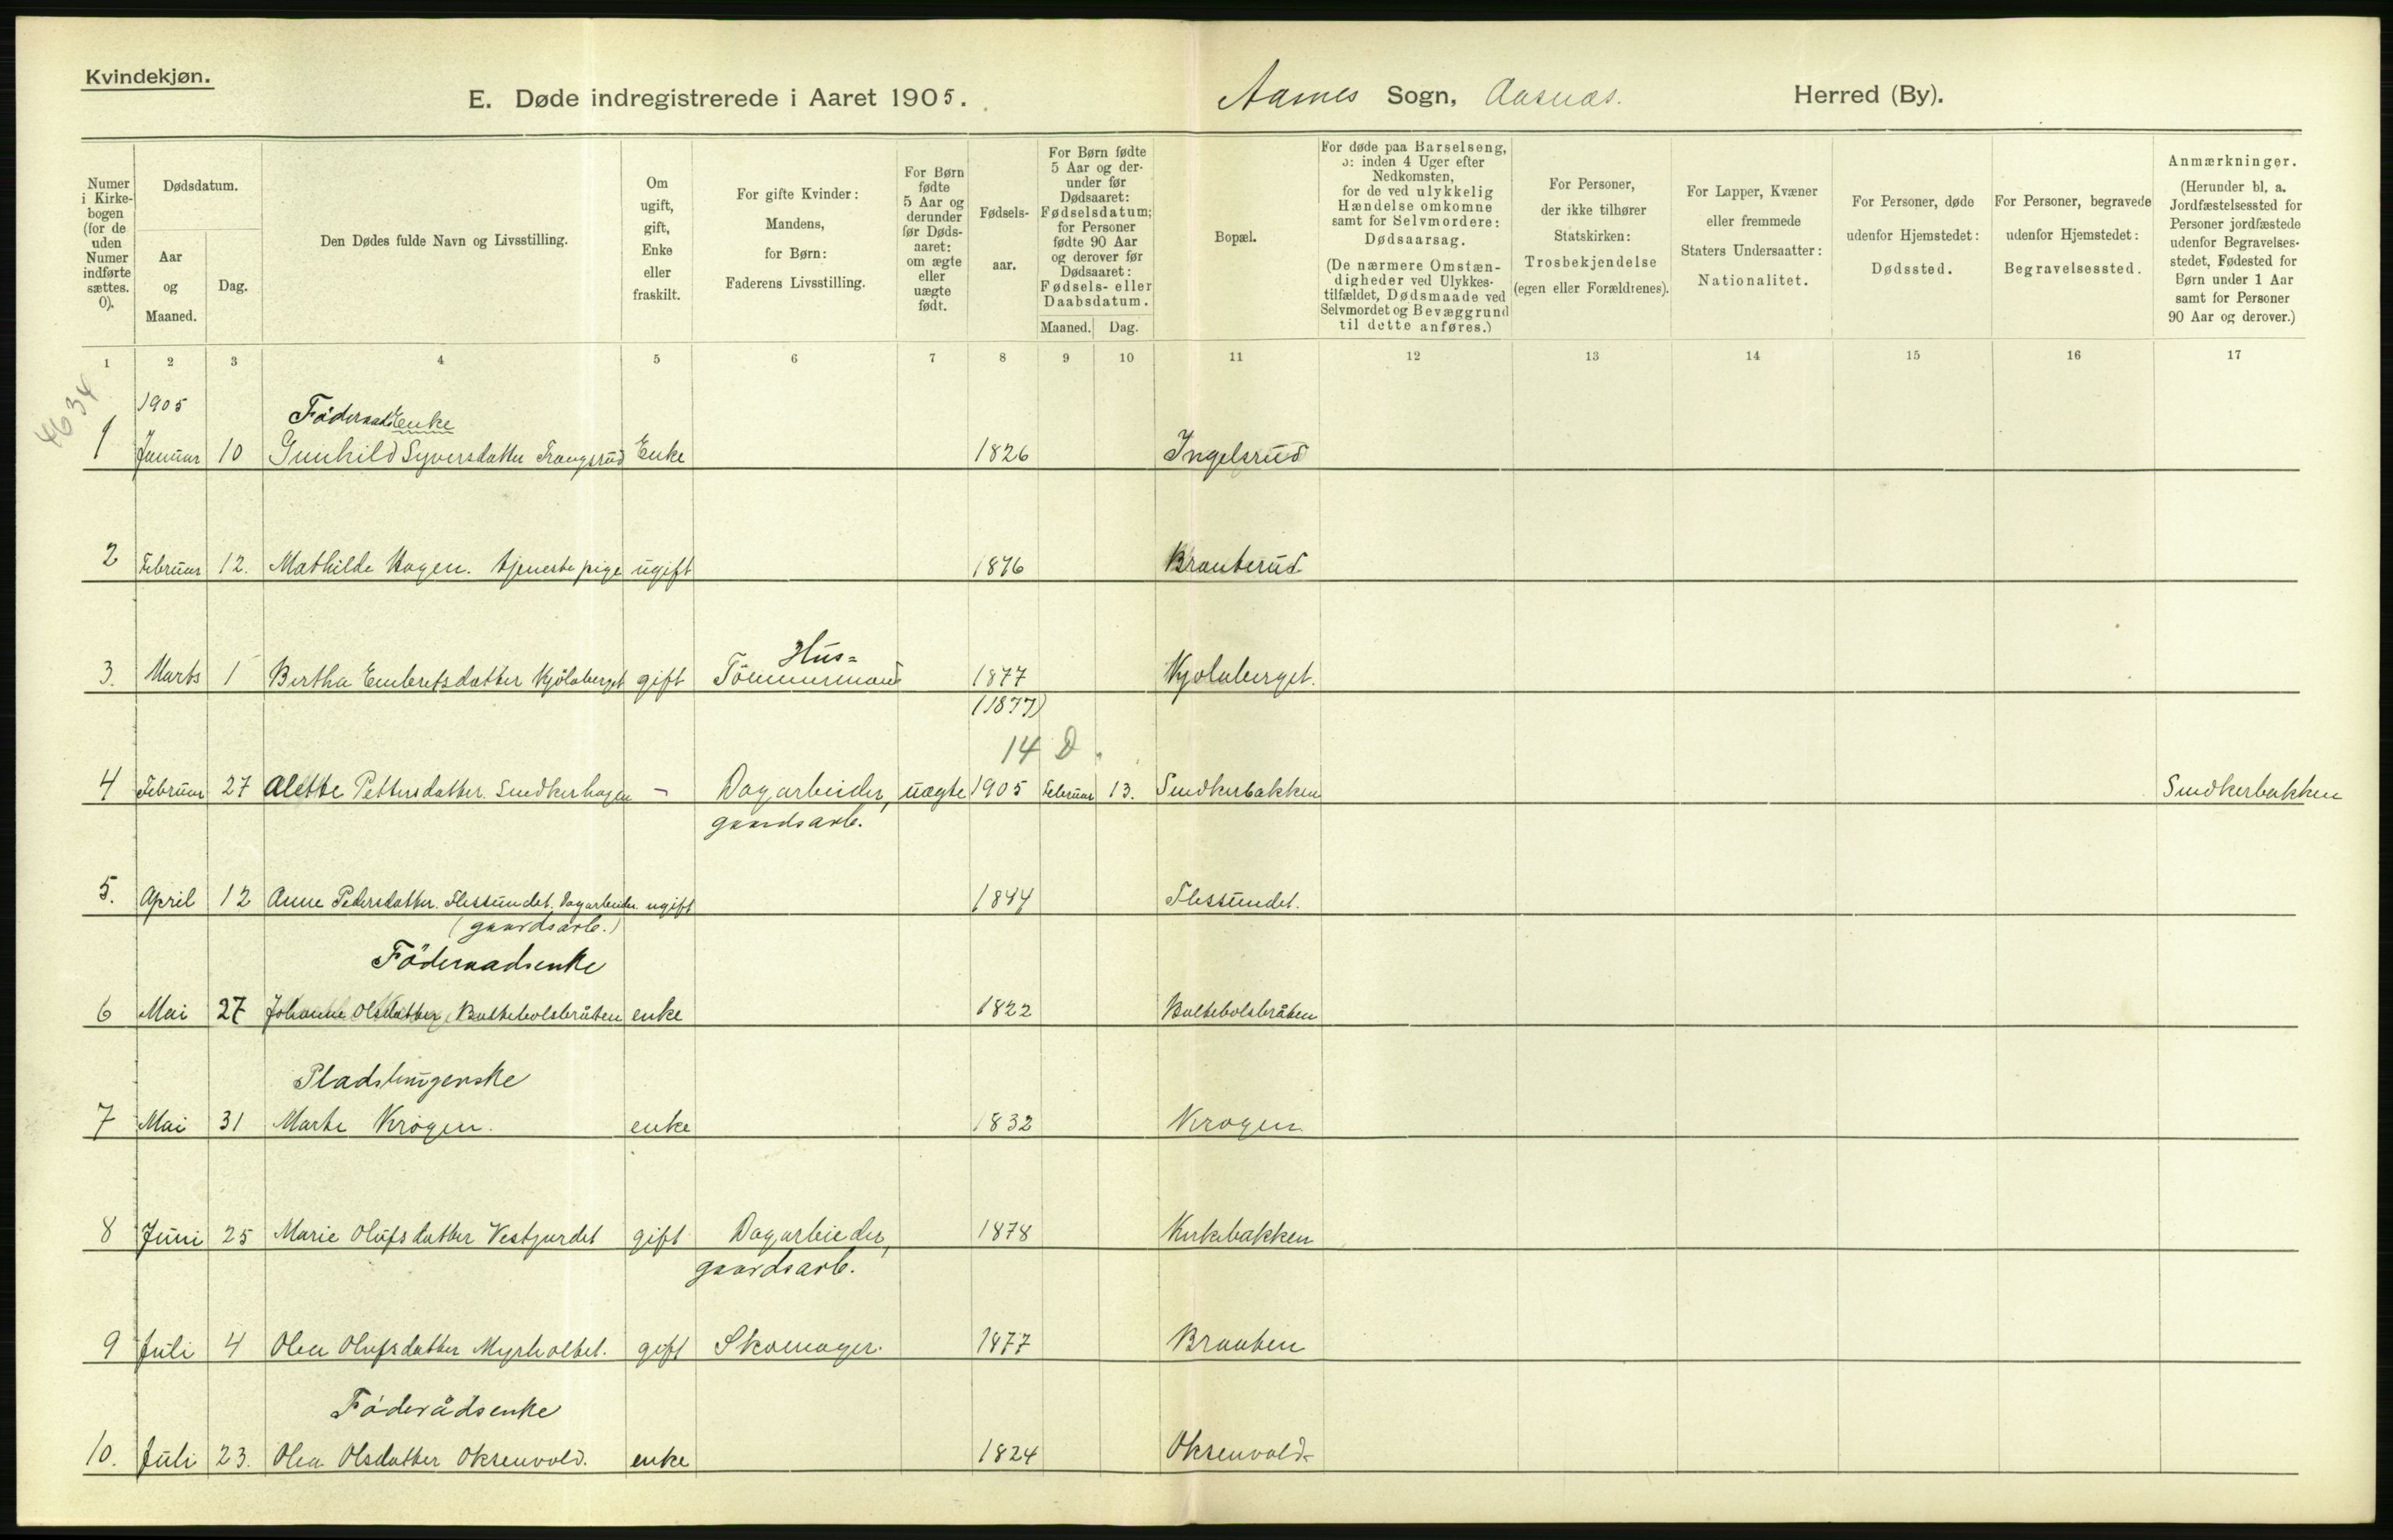 Kvindekjøn.
E. Døde indregistrerede i Aaret 1905.
Aamos Sogn, Aasnæs. Herred (By).
Numer i Kirke-bogen (for de uden Numer indførte sættes. 0).
Dødsdatum.
Aar og Maaned.
Dag.
Den Dødes fulde Navn og Livsstilling.
Om ugift, gift, Enke eller fraskilt.
For gifte Kvinder: Mandens, for Børn: Faderens Livsstilling.
For Børn fødte 5 Aar og derunder før Døds-aaret: om ægte eller uægte født.
Fødsels-aar.
For Børn fødte 5 Aar og der-under før Dødsaaret: Fødselsdatum; for Personer fødte 90 Aar og derover før Dødsaaret: Fødsels- eller Daabsdatum.
Maaned. Dag.
Bopæl.
For døde paa Barselseng, ɔ: inden 4 Uger efter Nedkomsten, for de ved ulykkelig Hændelse omkomne samt for Selvmordere: Dødsaarsag. (De nærmere Omstæn-digheder ved Ulykkes-tilfældet, Dødsmaade ved Selvmordet og Bevæggrund til dette anføres.)
For Personer, der ikke tilhører Statskirken: Trosbekjendelse (egen eller Forældrenes).
For Lapper, Kvæner eller fremmede Staters Undersaatter: Nationalitet.
For Personer, døde udenfor Hjemstedet: Dødssted.
For Personer, begravede udenfor Hjemstedet: Begravelsessted.
Anmærkninger. (Herunder bl. a. Jordfæstelsessted for Personer jordfæstede udenfor Begravelses-stedet, Fødested for Børn under 1 Aar samt for Personer 90 Aar og derover.)
1 2 3 4 5 6 7 8 9 10 11 12 13 14 15 16 17
4634
1905
Föderaadsenke
1 Januar 10 Gunhild Syversdatter Trangsrud Enke 1826 Ingelsrud
2 Februar 12. Mathilde Hagen. tjenestepige ugift 1876 Brauterud
Hus=
3. Marts 1 Bertha Embretsdatter Kjölaberget gift Tömmermand 1877 Kjolaberget.
(1877)
14 D.
4 Februar 27 Alette Pettersdatter. Smedkerhagen - Dagarbeider, uægte 1905 Februar 13. Smedkerbakken Smedkerbakken
gaardsarb.
5. April 12 Anne Pedersdatter. Flessundet. Dagarbeider. ugift 1844 Flessundet.
(gaardsarb.)
Föderaadsenke
6 Mai 27 Johanne Olsdatter Baltebolsbråten enke 1822 Baltebolsbråten
Pladsbrugerske
7 Mai 31 Marte Krogen. enke 1832 Krogen
8 Juni 25 Marie Olufsdatter Vestgardet gift Dagarbieder, 1878 Kirkebakken
gaardsarb.
9 Juli 4 Olea Olufsdatter Myrholtet. gift Skomager. 1877 Braaten
Föderådsenke
10. Juli 23. Olea Olsdatter Oksenvold. enke 1824 Oksenvold